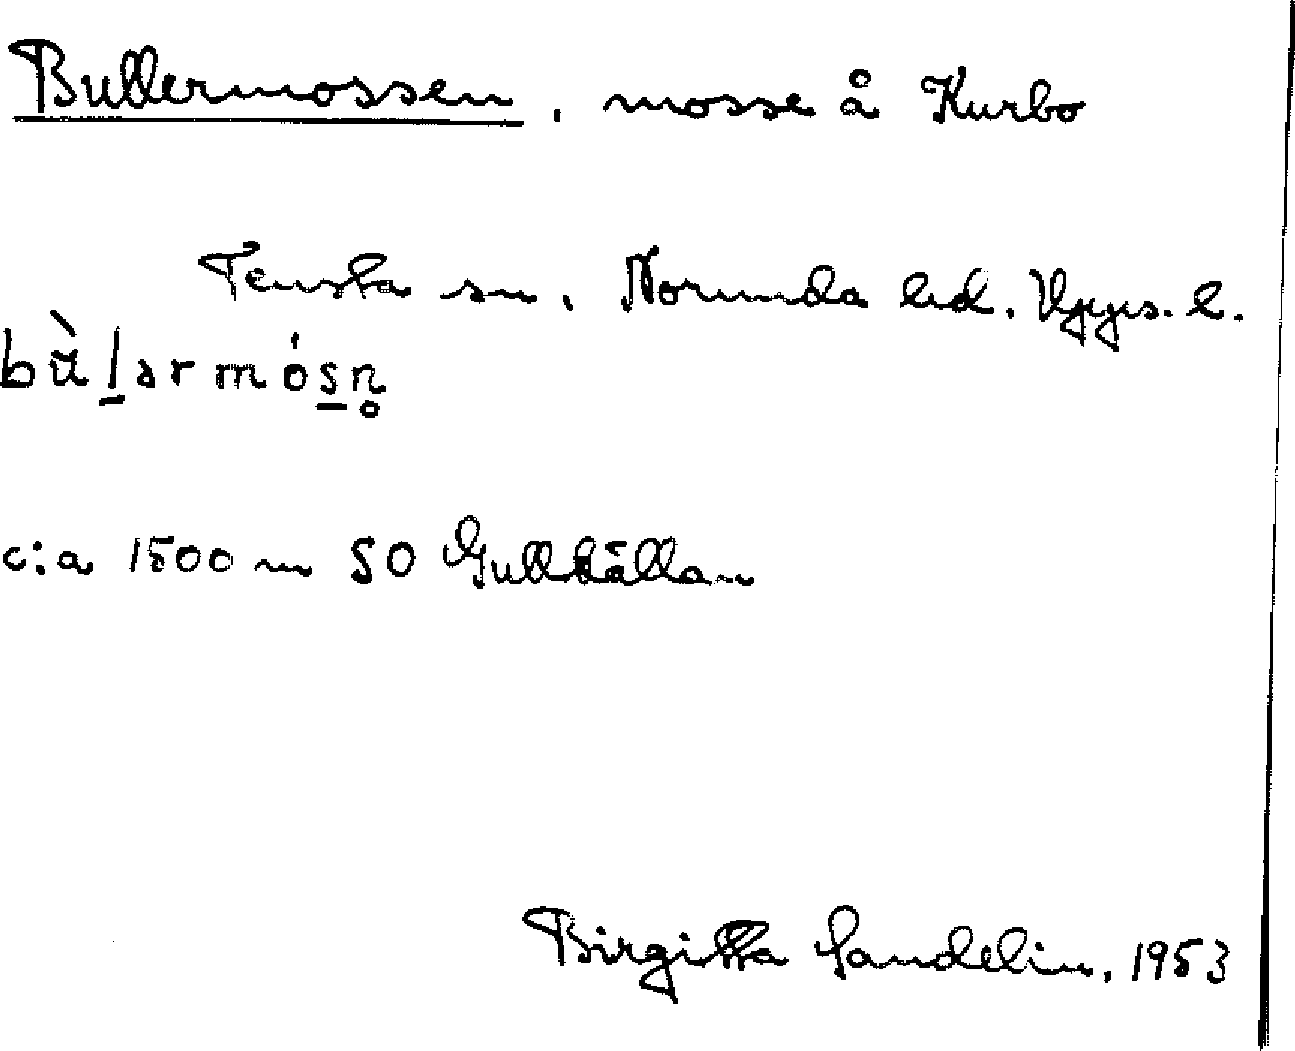 Bullermossen, mosse å Kurbo
Tensta sn, Norunda hd. Upps. l.
bùl̠ərmósn̥
c:a 1500 m SO Gullkällan
Birgitta Sandelin, 1953